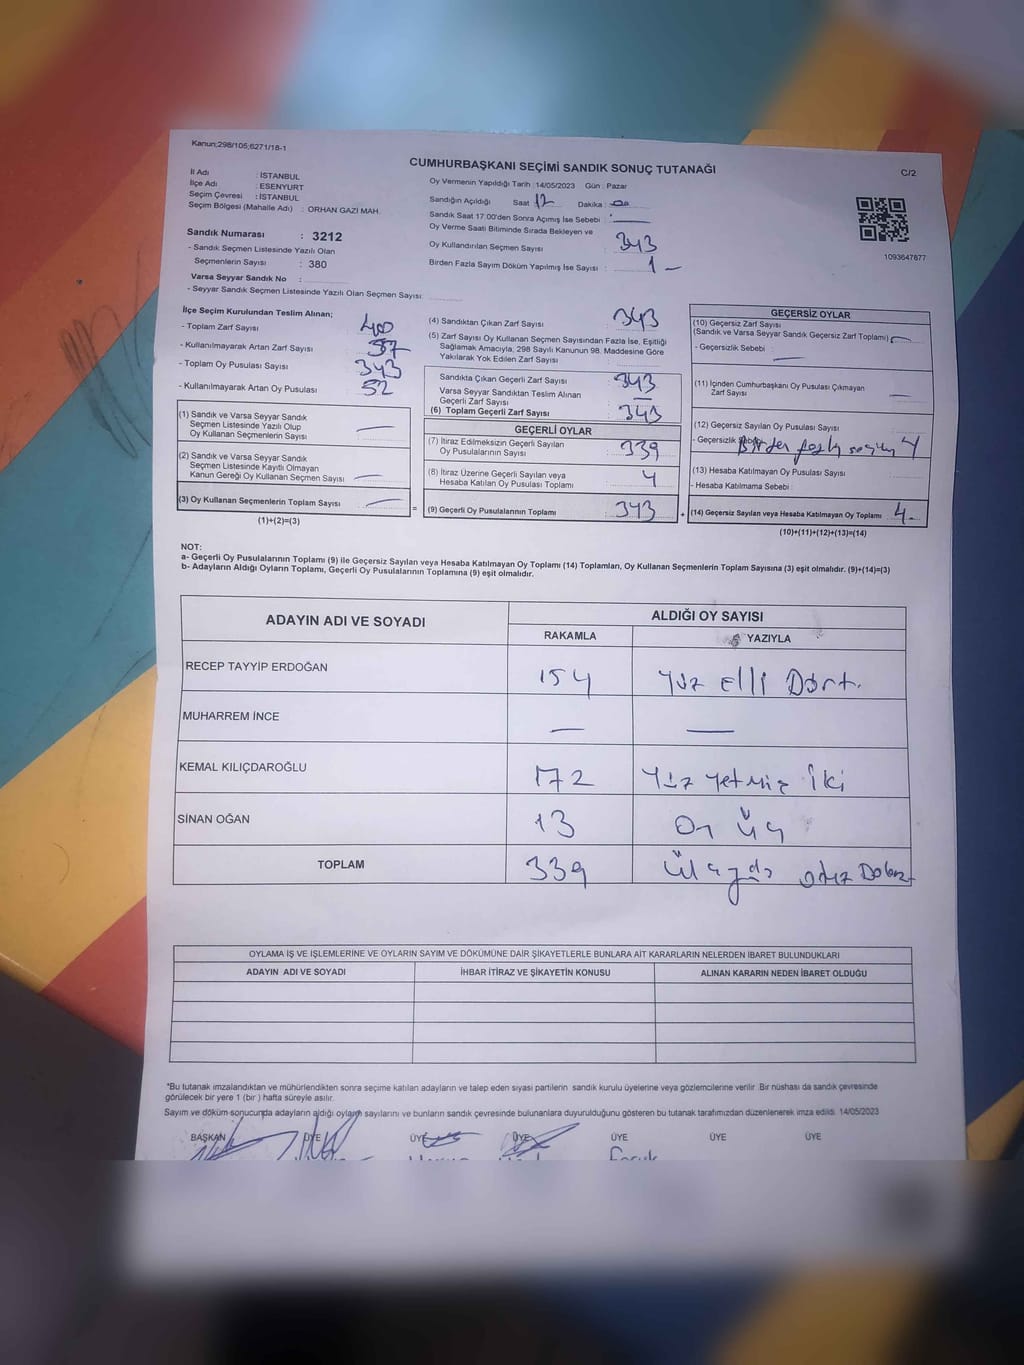 Kanun;298/105;6271/18-1
CUMHURBAŞKANI SEÇİMİ SANDIK SONUÇ TUTANAĞI
C/2
İl Adı : İSTANBUL
İlçe Adı : ESENYURT
Seçim Çevresi : İSTANBUL
Seçim Bölgesi (Mahalle Adı) : ORHAN GAZI MAH.
Sandık Numarası : 3212
- Sandık Seçmen Listesinde Yazılı Olan
Seçmenlerin Sayısı : 380
Varsa Seyyar Sandık No :
- Seyyar Sandık Seçmen Listesinde Yazılı Olan Seçmen Sayısı:
Oy Vermenin Yapıldığı Tarih :14/05/2023 Gün : Pazar
Sandığın Açıldığı Saat 17 Dakika : 00
Sandık Saat 17:00'den Sonra Açımış İse Sebebi :
Oy Verme Saati Bitiminde Sırada Bekleyen ve
Oy Kullandırılan Seçmen Sayısı : 343
Birden Fazla Sayım Döküm Yapılmış İse Sayısı : 1 -
1093647877
İlçe Seçim Kurulundan Teslim Alınan;
- Toplam Zarf Sayısı 400
- Kullanılmayarak Artan Zarf Sayısı 57
- Toplam Oy Pusulası Sayısı 343
- Kullanılmayarak Artan Oy Pusulası 52
(1) Sandık ve Varsa Seyyar Sandık
Seçmen Listesinde Yazılı Olup
Oy Kullanan Seçmenlerin Sayısı —
(2) Sandık ve Varsa Seyyar Sandık
Seçmen Listesinde Kayıtlı Olmayan
Kanun Gereği Oy Kullanan Seçmen Sayısı —
(3) Oy Kullanan Seçmenlerin Toplam Sayısı —
(1)+(2)=(3)
=
(4) Sandıktan Çıkan Zarf Sayısı : 343
(5) Zarf Sayısı Oy Kullanan Seçmen Sayısından Fazla İse, Eşitliği
Sağlamak Amacıyla; 298 Sayılı Kanunun 98. Maddesine Göre
Yakılarak Yok Edilen Zarf Sayısı :
Sandıkta Çıkan Geçerli Zarf Sayısı : 343
Varsa Seyyar Sandıktan Teslim Alınan
Geçerli Zarf Sayısı : —
(6) Toplam Geçerli Zarf Sayısı : 343
GEÇERLİ OYLAR
(7) İtiraz Edilmeksizin Geçerli Sayılan
Oy Pusulalarının Sayısı : 339
(8) İtiraz Üzerine Geçerli Sayılan veya
Hesaba Katılan Oy Pusulası Toplamı : 4
(9) Geçerli Oy Pusulalarının Toplamı : 343
+
GEÇERSİZ OYLAR
(10) Geçersiz Zarf Sayısı
(Sandık ve Varsa Seyyar Sandık Geçersiz Zarf Toplamı) —
- Geçersizlik Sebebi : —
(11) İçinden Cumhurbaşkanı Oy Pusulası Çıkmayan
Zarf Sayısı —
(12) Geçersiz Sayılan Oy Pusulası Sayısı
- Geçersizlik Birden fazla 4
(13) Hesaba Katılmayan Oy Pusulası Sayısı
- Hesaba Katılmama Sebebi :
(14) Geçersiz Sayılan veya Hesaba Katılmayan Oy Toplamı 4-
(10)+(11)+(12)+(13)=(14)
NOT:
a- Geçerli Oy Pusulalarının Toplamı (9) ile Geçersiz Sayılan veya Hesaba Katılmayan Oy Toplamı (14) Toplamları, Oy Kullanan Seçmenlerin Toplam Sayısına (3) eşit olmalıdır. (9)+(14)=(3)
b- Adayların Aldığı Oyların Toplamı, Geçerli Oy Pusulalarının Toplamına (9) eşit olmalıdır.
ADAYIN ADI VE SOYADI
ALDIĞI OY SAYISI
RAKAMLA YAZIYLA
RECEP TAYYİP ERDOĞAN 154 Yüz elli Dört.
MUHARREM İNCE — —
KEMAL KILIÇDAROĞLU 172 Yüz yetmiş İki
SİNAN OĞAN 13 On üç
TOPLAM 339 otuz
OYLAMA İŞ VE İŞLEMLERİNE VE OYLARIN SAYIM VE DÖKÜMÜNE DAİR ŞİKAYETLERLE BUNLARA AİT KARARLARIN NELERDEN İBARET BULUNDUKLARI
ADAYIN ADI VE SOYADI İHBAR İTİRAZ VE ŞİKAYETİN KONUSU ALINAN KARARIN NEDEN İBARET OLDUĞU
*Bu tutanak imzalandıktan ve mühürlendikten sonra seçime katılan adayların ve talep eden siyasi partilerin sandık kurulu üyelerine veya gözlemcilerine verilir. Bir nüshası da sandık çevresinde
görülecek bir yere 1 (bir ) hafta süreyle asılır.
Sayım ve döküm sonucunda adayların aldığı oyların sayılarını ve bunların sandık çevresinde bulunanlara duyurulduğunu gösteren bu tutanak tarafımızdan düzenlenerek imza edildi. 14/05/2023
BAŞKAN ÜYE ÜYE ÜYE ÜYE ÜYE ÜYE